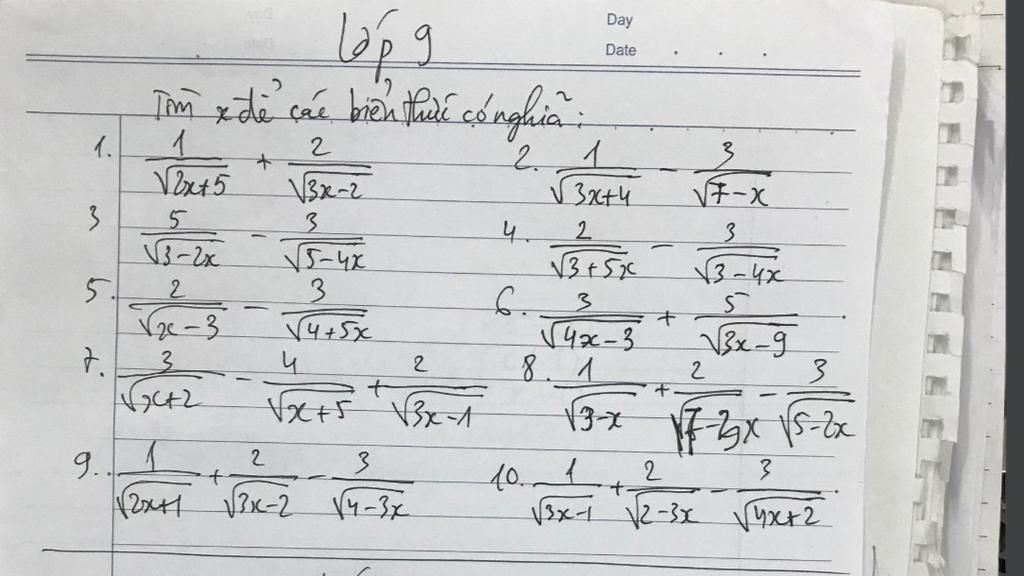 Lớp 9
Day
Date . . .
Tìm x để các biểu thức có nghĩa:
1. 1/√(2x+5) + 2/√(3x−2)
2. 1/√(3x+4) − 3/√(7−x)
3 5/√(3−2x) − 3/√(5−4x)
4. 2/√(3+5x) − 3/√(3−4x)
5. 2/√(x−3) − 3/√(4+5x)
6. 3/√(4x−3) + 5/√(3x−9)
7. 3/√(x+2) − 4/√(x+5) + 2/√(3x−1)
8. 1/√(3−x) + 2/√(7−2x) − 3/√(5−2x)
9. 1/√(2x+1) + 2/√(3x−2) − 3/√(4−3x)
10. 1/√(3x−1) + 2/√(2−3x) − 3/√(4x+2)